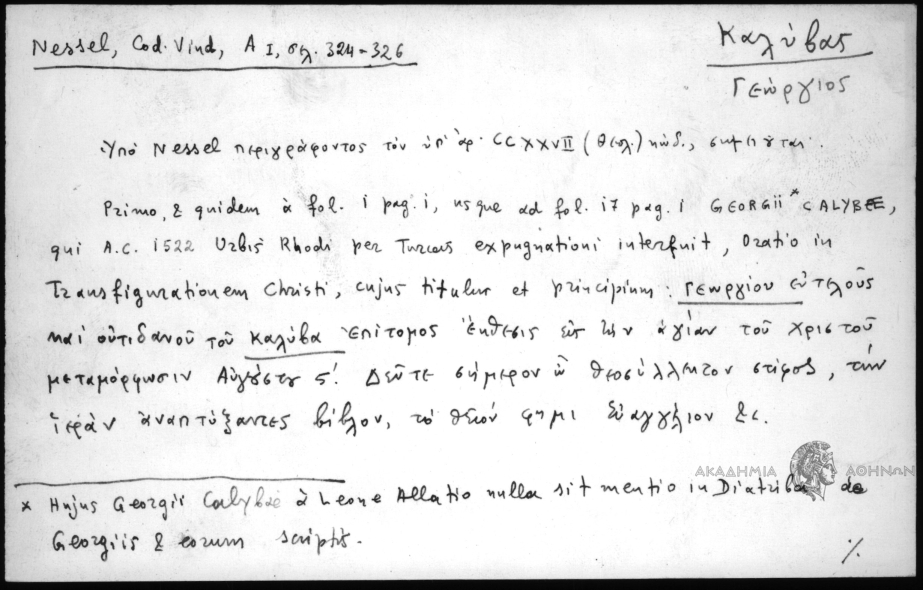 Nessel, Cod. Vind, A I, σελ. 324-326
Καλύβας
Γεώργιος
Ὑπὸ Nessel περιγράφοντος τὸν ὑπ' ἀρ. CCXXVII (θεολ.) κώδ., σημειοῦται:
Primo, & quidem à fol. 1 pag. 1, usque ad fol. 17 pag. 1 GEORGII * CALYBÆ,
qui A.C. 1522 Urbis Rhodi per Turcas expugnationi interfuit, Oratio in
Transfigurationem Christi, cujus titulus et principium: Γεωργίου εὐτελοῦς
καὶ οὐτιδανοῦ τοῦ Καλύβα ἐπίτομος ἔκθεσις εἰς τὴν ἁγίαν τοῦ Χριστοῦ
μεταμόρφωσιν Αὐγούστου ς'. Δεῦτε σήμερον ὦ θεοσύλλεκτον στίφος, τὴν
ἱερὰν ἀναπτύξαντες βίβλον, τὸ θεῖον φημι εὐαγγέλιον &c.
ΑΚΑΔΗΜΙΑ ΑΘΗΝΩΝ
* Hujus Georgii Calybae à Leone Allatio nulla sit mentio in Diatriba de
Georgiis & eorum scriptis.
·/.